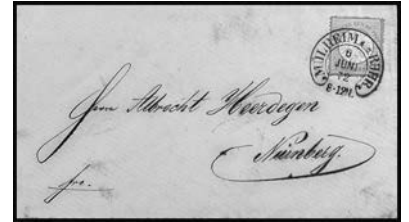 MÜLHEIM A/D RUHR.
6
JUNI
72
8-12V.
Herrn Albrecht Heerdegen
Nürnberg.
fro.